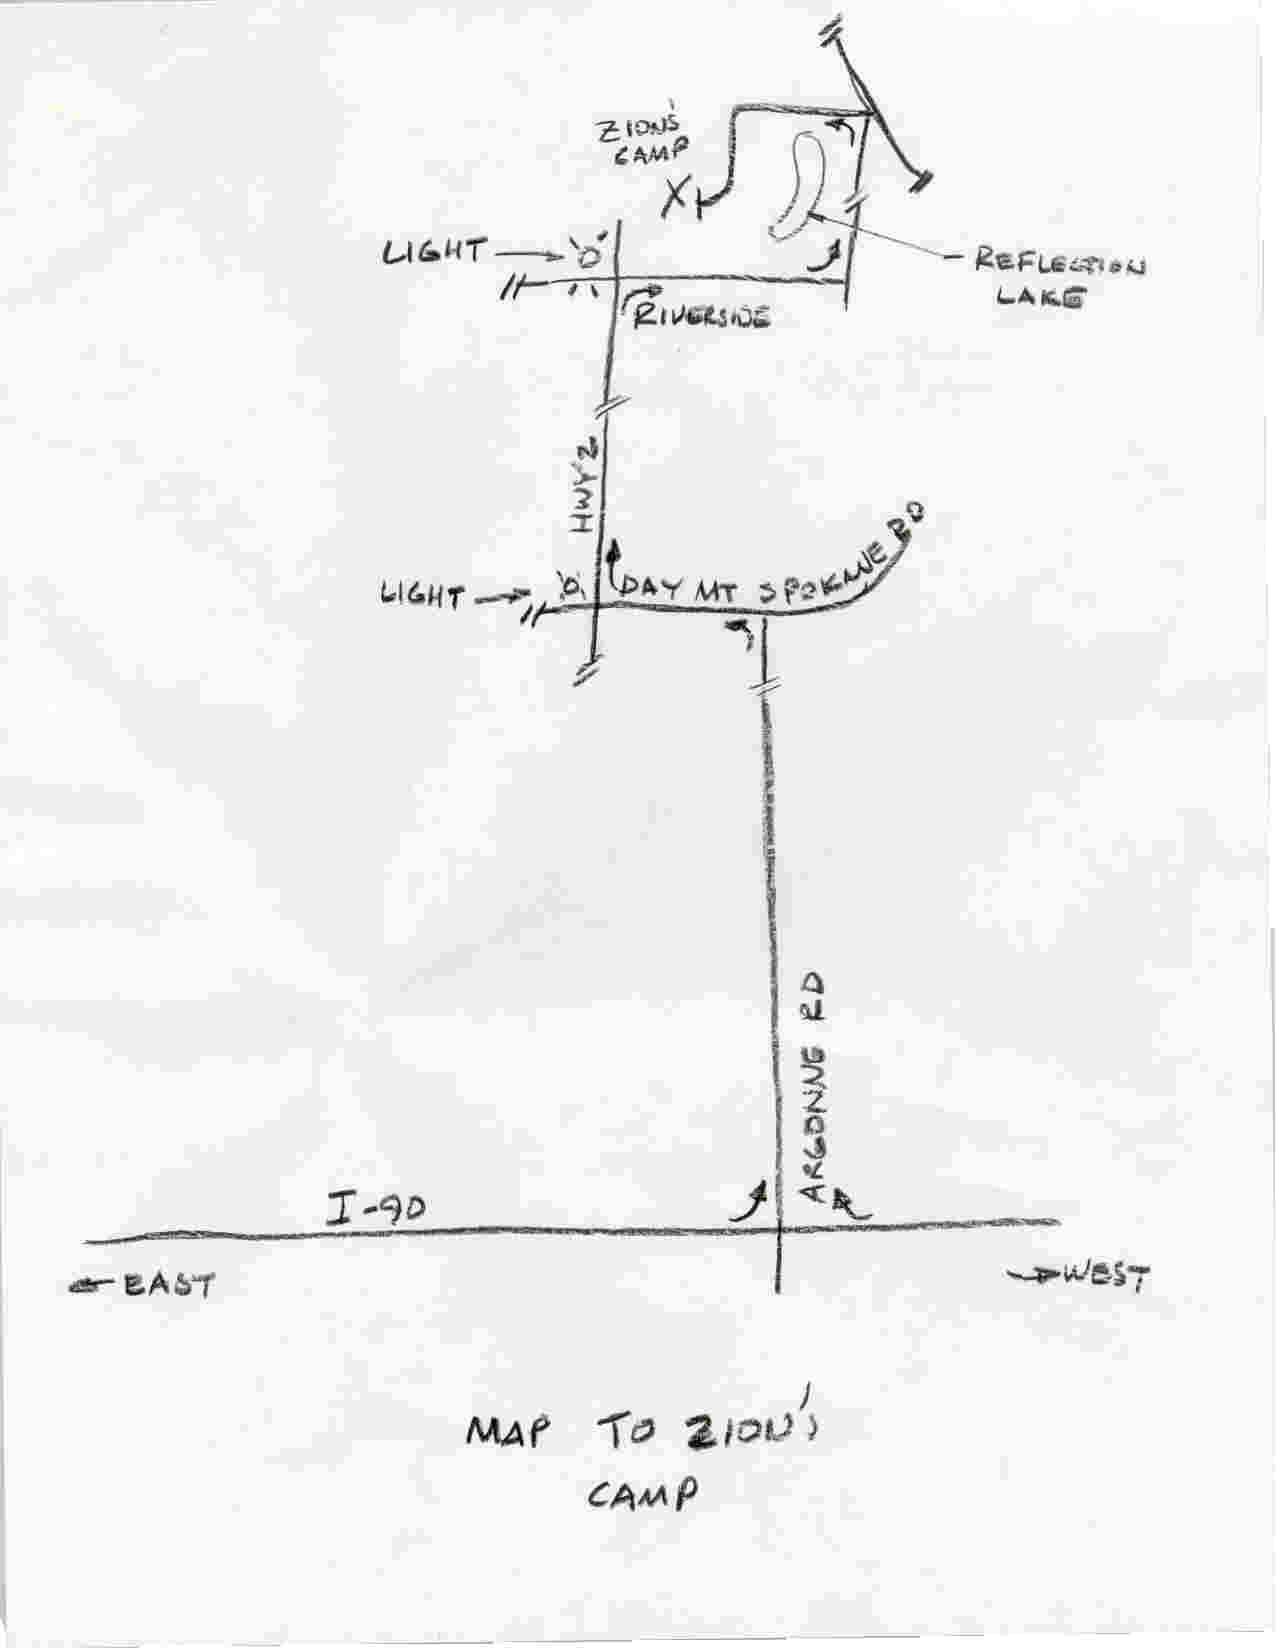 ZION'S
CAMP
LIGHT
REFLECTION
LAKE
RIVERSIDE
HWY 2
LIGHT
DAY MT SPOKANE RD
ARGONNE RD
I-90
EAST
WEST
MAP TO ZION'S
CAMP